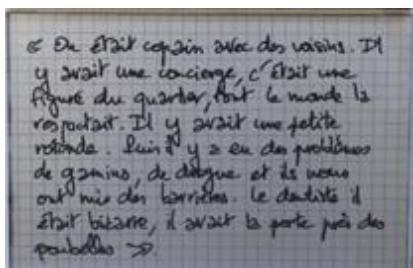 « On était copain avec des voisins. Il
y avait une concierge, c'était une
figure du quartier, tout le monde la
respectait. Il y avait une petite
rotonde. Puis il y a eu des problèmes
de gamins, de drogue et ils nous
ont mis des barrières. Le dentiste il
était bizarre, il avait la porte près des
poubelles ».